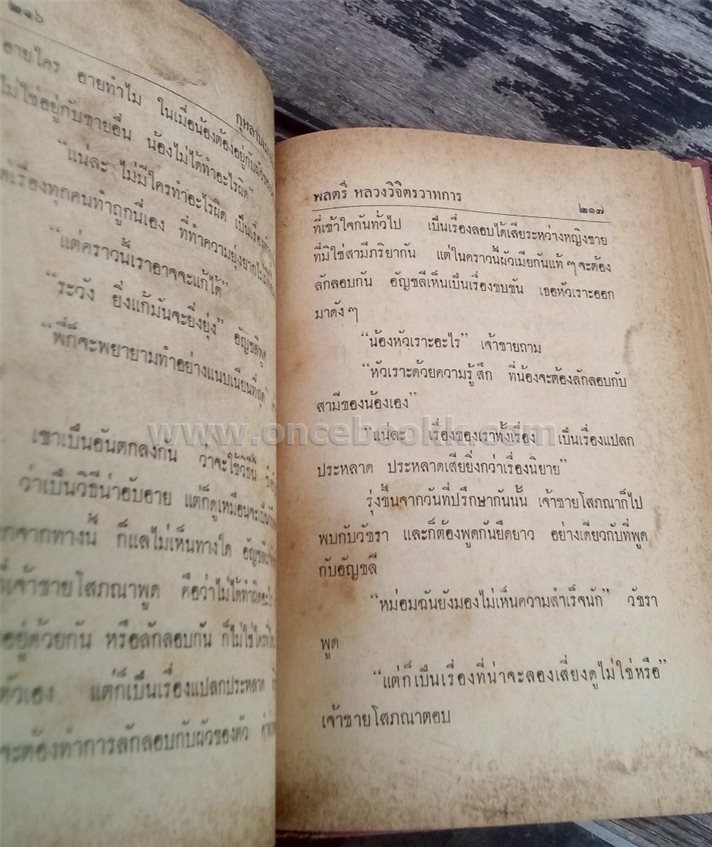 ๒๑๖
อายใคร อายทำไม ในเมื่อน้องต้องอยู่กับ
ไม่ใช่อยู่กับชายอื่น น้องไม่ได้ทำอะไรผิด"
"แน่ละ ไม่มีใครทำอะไรผิด เป็นเรื่อง
เรื่องทุกคนทำถูกนี่เอง ที่ทำความยุ่งยาก
"แต่คราวนี้เราอาจจะแก้ได้"
"ระวัง ยิ่งแก้มันจะยิ่งยุ่ง" อัญชลีพูด
"พี่ก็จะพยายามทำอย่างแนบเนียนที่สุด"
เขาเป็นอันตกลงกัน ว่าจะใช้วิธีนี้
ว่าเป็นวิธีน่าอับอาย แต่ก็ดูเหมือนจะเป็น
จากทางนี้ ก็แลไม่เห็นทางใด
ที่เจ้าชายโสภณาพูด คือว่าไม่ได้ทำผิด
อยู่ด้วยกัน หรือลักลอบกัน ก็ไม่ใช่
ตัวเอง แต่ก็เป็นเรื่องแปลกประหลาด
จะต้องทำการลักลอบกับผัวของตัว
พลตรี หลวงวิจิตรวาทการ ๒๑๗
ที่เข้าใจกันทั่วไป เป็นเรื่องลอบได้เสียระหว่างหญิงชาย
ที่มิใช่สามีภริยากัน แต่ในคราวนี้ผัวเมียกันแท้ ๆ จะต้อง
ลักลอบกัน อัญชลีเห็นเป็นเรื่องขบขัน เธอหัวเราะออก
มาดัง ๆ
"น้องหัวเราะอะไร" เจ้าชายถาม
"หัวเราะด้วยความรู้สึก ที่น้องจะต้องลักลอบกับ
สามีของน้องเอง"
"แน่ละ เรื่องของเราทั้งเรื่อง เป็นเรื่องแปลก
ประหลาด ประหลาดเสียยิ่งกว่าเรื่องนิยาย"
รุ่งขึ้นจากวันที่ปรึกษากันนั้น เจ้าชายโสภณาก็ไป
พบกับวัชรา และก็ต้องพูดกันยืดยาว อย่างเดียวกับที่พูด
กับอัญชลี
"หม่อมฉันยังมองไม่เห็นความสำเร็จนัก" วัชรา
พูด
"แต่ก็เป็นเรื่องที่น่าจะลองเสี่ยงดูไม่ใช่หรือ"
เจ้าชายโสภณาตอบ
www.oncebookk.com